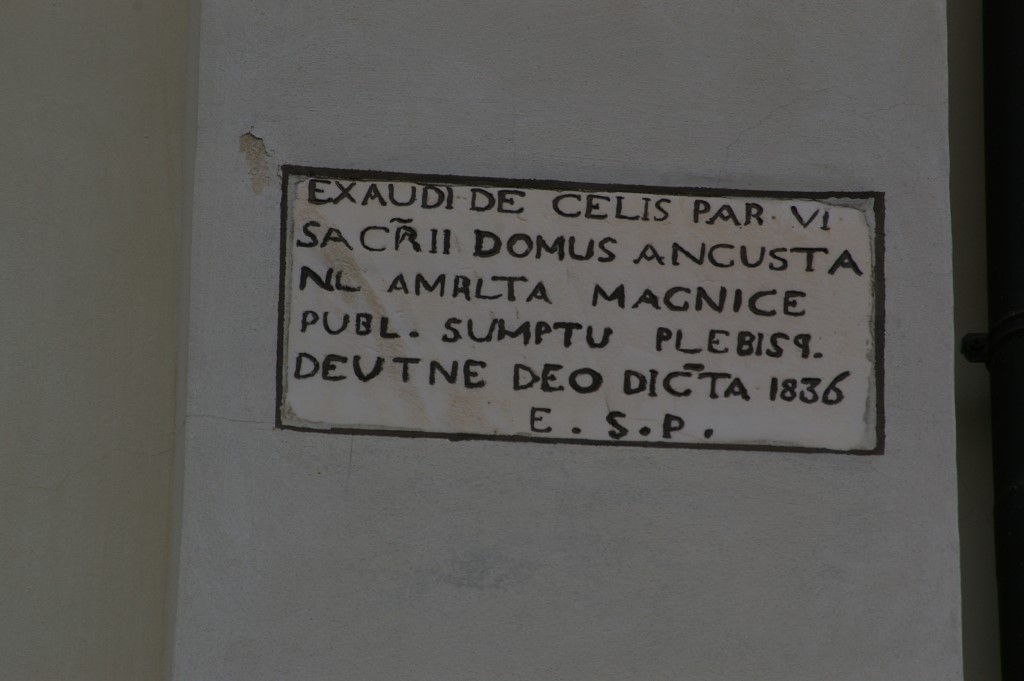 EXAUDI·DE CELIS PAR· VI
SACR̃II DOMUS ANCUSTA
NL AMRLTA MAGNICE
PUBL. SUMPTU PLEBISQ.
DEUTNE DEO DIC̄TA 1836
E . S . P .